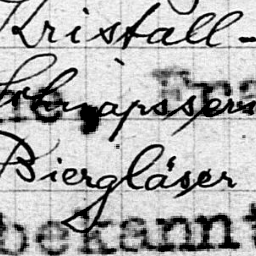 Kristall-
Schnapsserv
Biergläser
bekannt